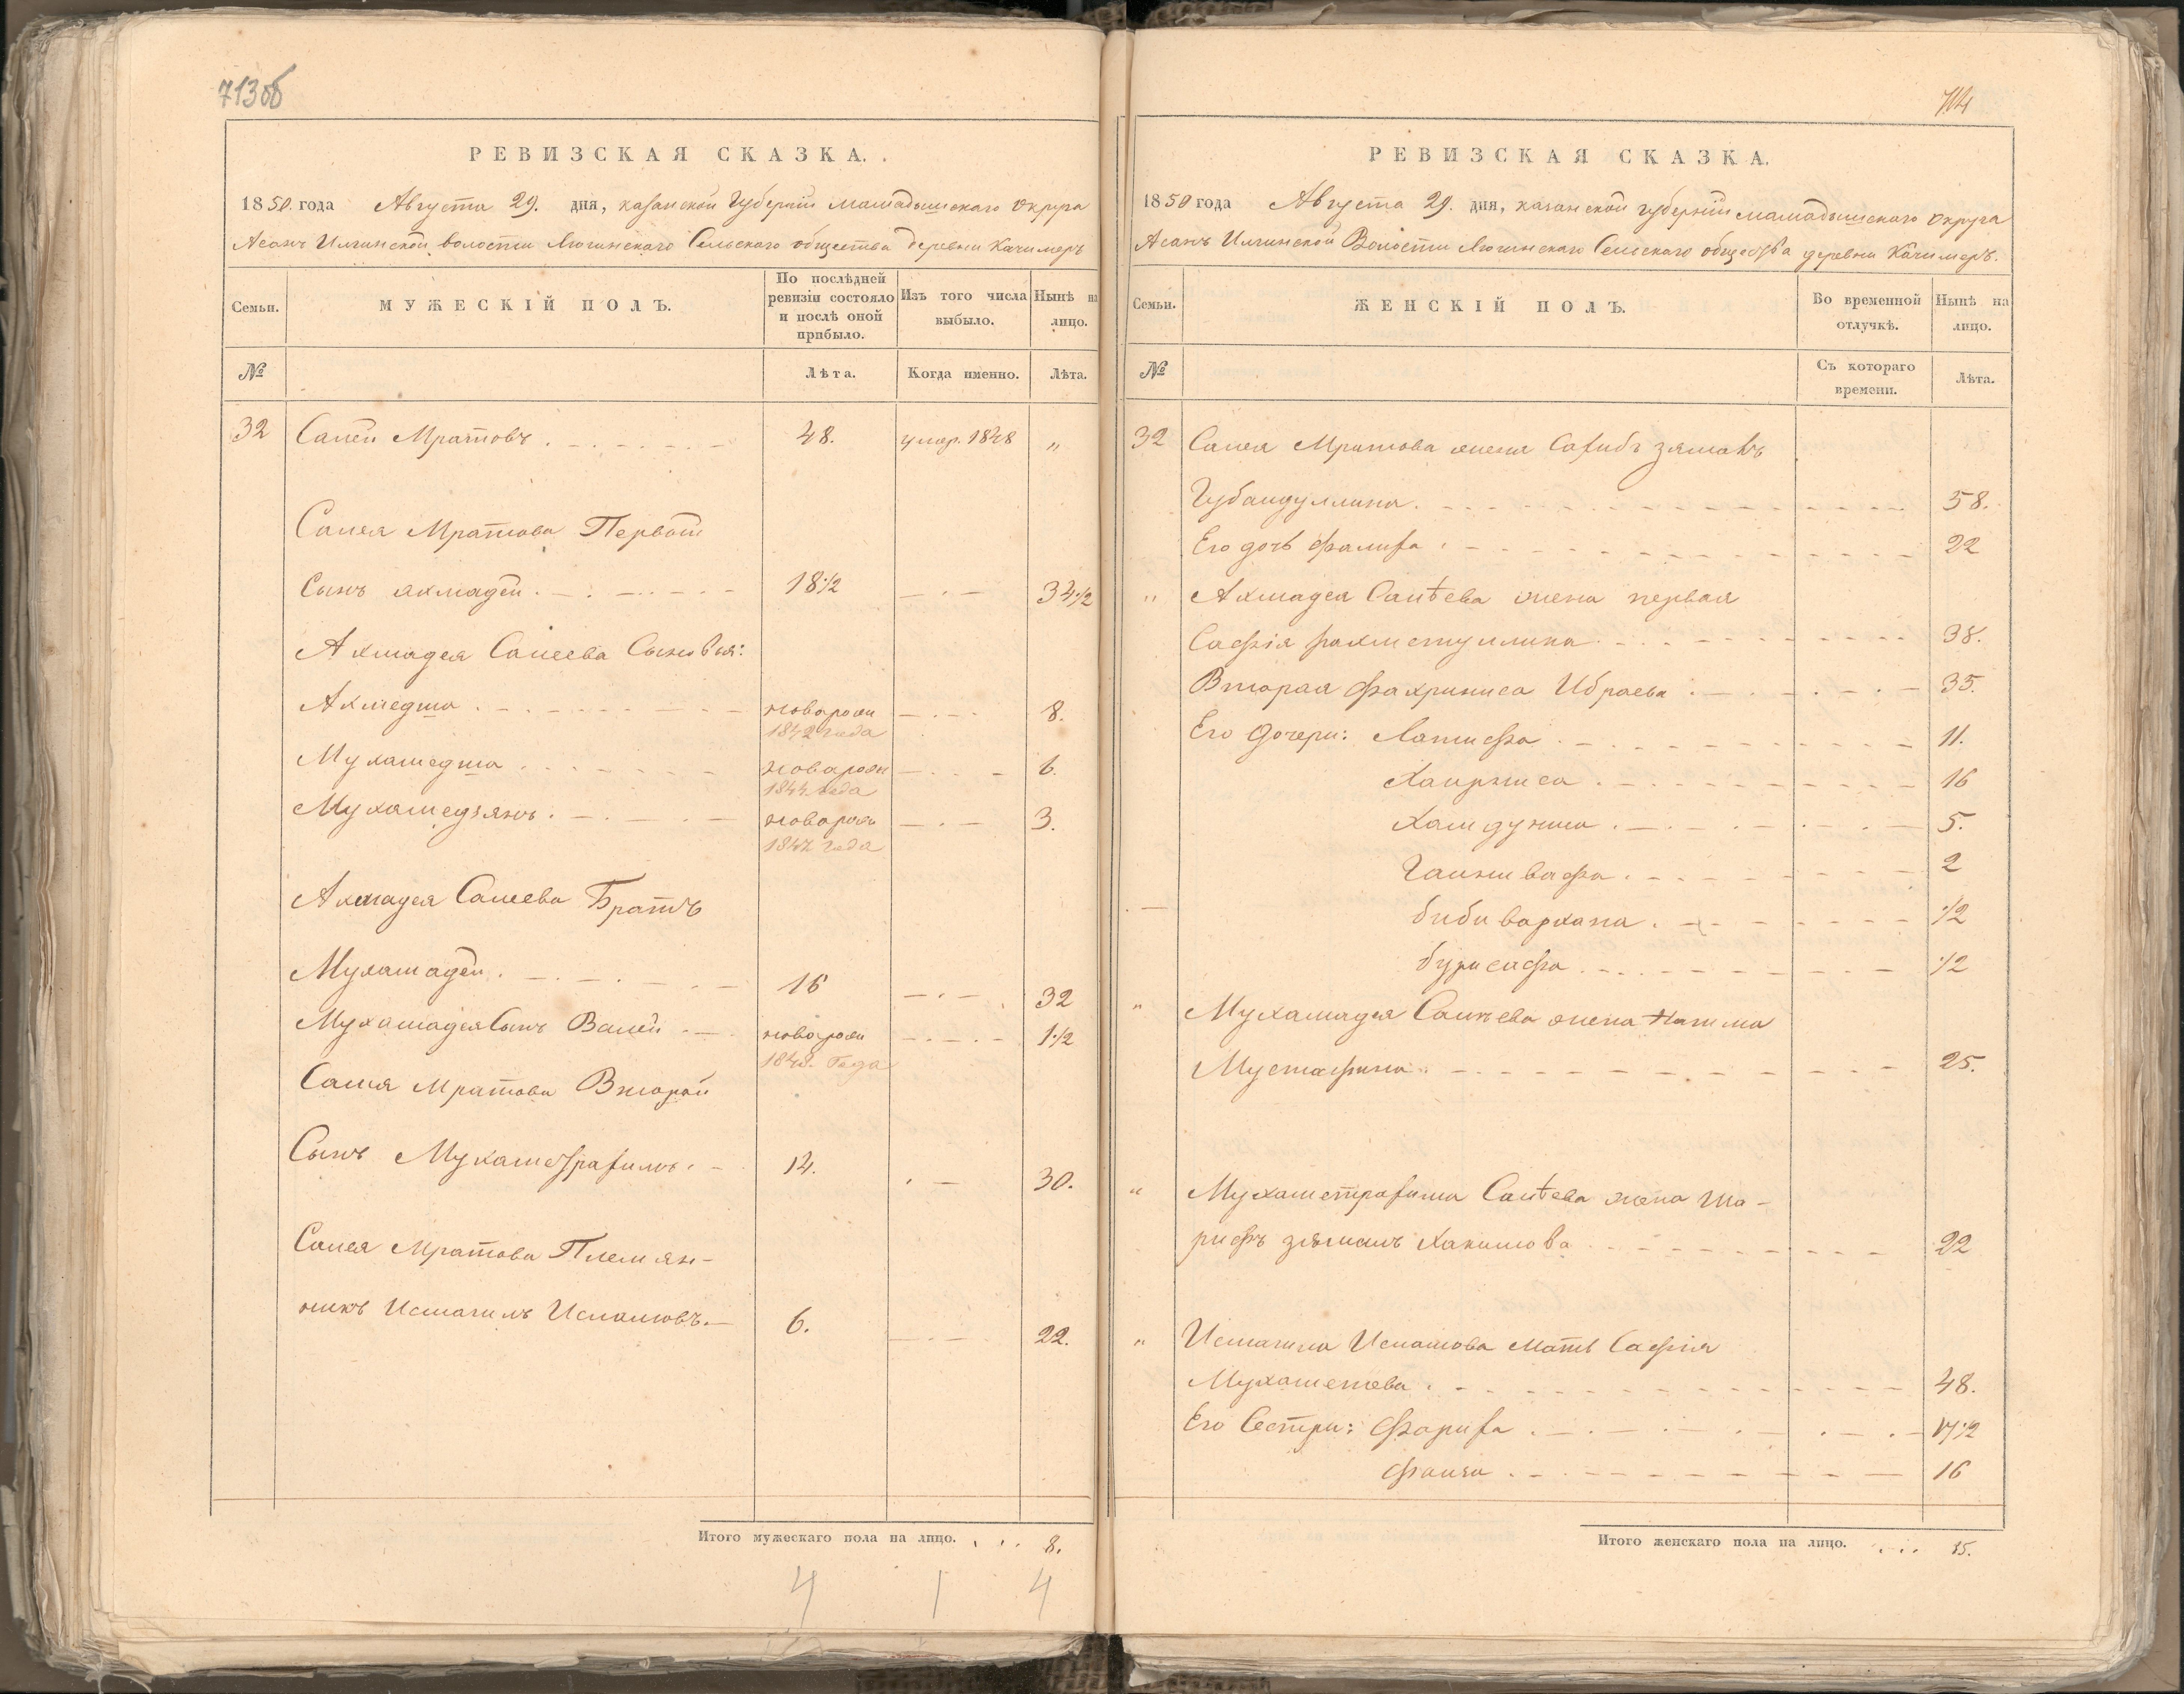 713об
РЕВИЗСКАЯ СКАЗКА.
1850 года Августа 29. дня, казанской Губернiи мамадышскаго округа
Асанъ Илгинской волости Сельскаго общества деревни Качимеръ
Семьи. МУЖЕСКІЙ ПОЛЪ. По послѣдней ревизіи состояло и послѣ оной прибыло. Изъ того числа выбыло. Нынѣ на лицо.
№ Лѣта. Когда именно. Лѣта.
32 Салей Мратовъ 48. умер. 1848 „
Салея Мратова Первой
Сынъ ахмадей 18 1/2 34 1/2
Ахмадея Салеева Сыновья:
Ахмедша новорож 8.
1842 года
Мухамедша новорож 6.
1844 года
Мухамедзянъ новорож 3.
1847 года
Ахмадея Салеева Братъ
Мухамадей 16 32
Мухамадея Сынъ Валей новорож 1 1/2
1848. Года
Салея Мратова Второй
Сынъ Мухаметрафимъ 14. 30.
Салея Мратова Племян-
никъ Исмагилъ Исламовъ 6. 22.
Итого мужескаго пола на лицо. 8.
4 1 4
714
РЕВИЗСКАЯ СКАЗКА.
1850 года Августа 29. дня, казанской губернiи мамадышскаго округа
Асанъ Илгинской Волости Сельскаго общества деревни Качимеръ.
Семьи. ЖЕНСКІЙ ПОЛЪ. Во временной отлучкѣ. Нынѣ на лицо.
№ Съ котораго времени. Лѣта.
32 Салея Мратова жена
Губайдуллина 58.
Его дочь 22
„ Ахмадея Салѣева жена первая
Сафiя рахметуллина 38.
Вторая Фахриниса Ибраева 35.
Его дочери: Латифа 11.
Хаирниса 16
5.
2
биби 1/2
1/2
„ Мухамадея Салѣева жена
Мустафина 25.
„ Мухаметрафима Салѣева жена Ша-
рифъ зямалъ Хакимова 22
„ Исмагила Исламова мать Сафiя
Мухаметева 48.
Его Сестри: 17 1/2
16
Итого женскаго пола на лицо. 15.